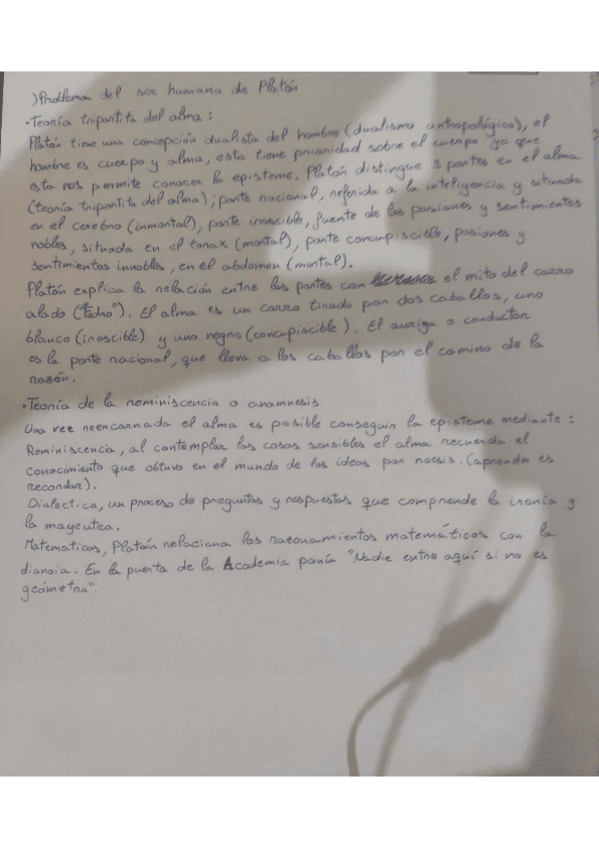 )Problema del ser humano de Platón
·Teoría tripartita del alma:
Platón tiene una concepción dualista del hombre (dualismo antropológico), el
hombre es cuerpo y alma, esta tiene prioridad sobre el cuerpo ya que
esta nos permite conocer la episteme. Platón distingue 3 partes en el alma
(teoría tripartita del alma); parte racional, referida a la inteligencia y situada
en el cerebro (inmortal), parte irascible, fuente de las pasiones y sentimientos
nobles, situada en el torax (mortal), parte concupiscible, pasiones y
sentimientos innobles, en el abdomen (mortal).
Platón explica la relación entre las partes con el mito del carro
alado ("Fedro"). El alma es un carro tirado por dos caballos, uno
blanco (irascible) y uno negro (concupiscible). El auriga o conductor
es la parte racional, que lleva a los caballos por el camino de la
razón.
·Teoría de la reminiscencia o anamnesis
Una vez reencarnada el alma es posible conseguir la episteme mediante:
Reminiscencia, al contemplar las cosas sensibles el alma recuerda el
conocimiento que obtuvo en el mundo de las ideas por noesis. (aprender es
recordar).
Dialectica, un proceso de preguntas y respuestas que comprende la ironía y
la mayeutica.
Matematicas, Platón relaciona los razonamientos matemáticos con la
dianoia. En la puerta de la Academia ponía "Nadie entre aquí si no es
geómetra".